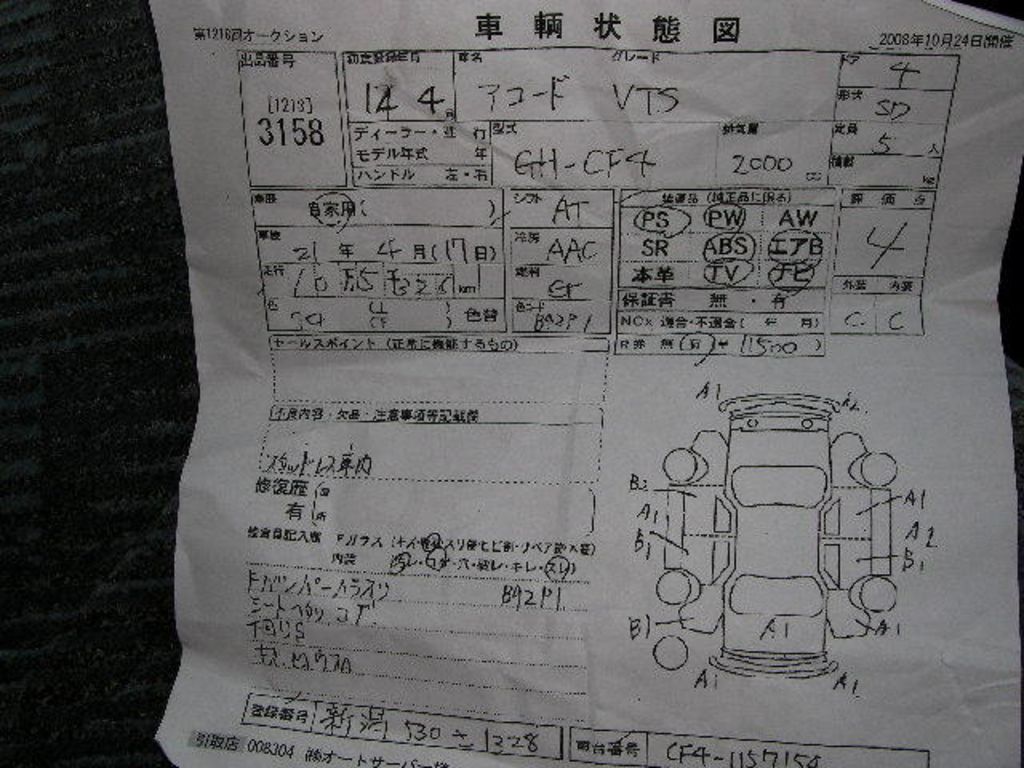 車輌状態図
第1216回オークション 2008年10月24日開催
出品番号 初度登録年月 車名 グレード ドア 4
[1213] 14 4月 アコード VTS 形状 SD
3158 ディーラー・並行 型式 排気量 定員 5人
モデル年式 年 GH-CF4 2000 cc 積載 kg
ハンドル 左・右
車歴 自家用( ) シフト AT 装備品 (純正品に限る) 評価点
PS PW AW 4
車検 21年4月(17日) 冷房 AAC SR ABS エアB
走行 km 燃料 本革 TV ナビ 外装 内装
保証書 無・有 C C
色 色替 色コード B92P1 NOx 適合・不適合( 年 月)
R券 無(有) ¥ 11500 )
セールスポイント (正常に機能するもの)
不良内容・欠品・注意事項等記載欄
スタッドレス車内
修復歴
有
検査員記入欄 Fガラス
内装
B92P1
A1 A2
B2 A1
A1 A2
B1 B1
B1 A1 A1
A1 A1
登録番号 新潟 530 1328 車台番号 CF4-1157154
引取店 008304 ㈱オートサーバー